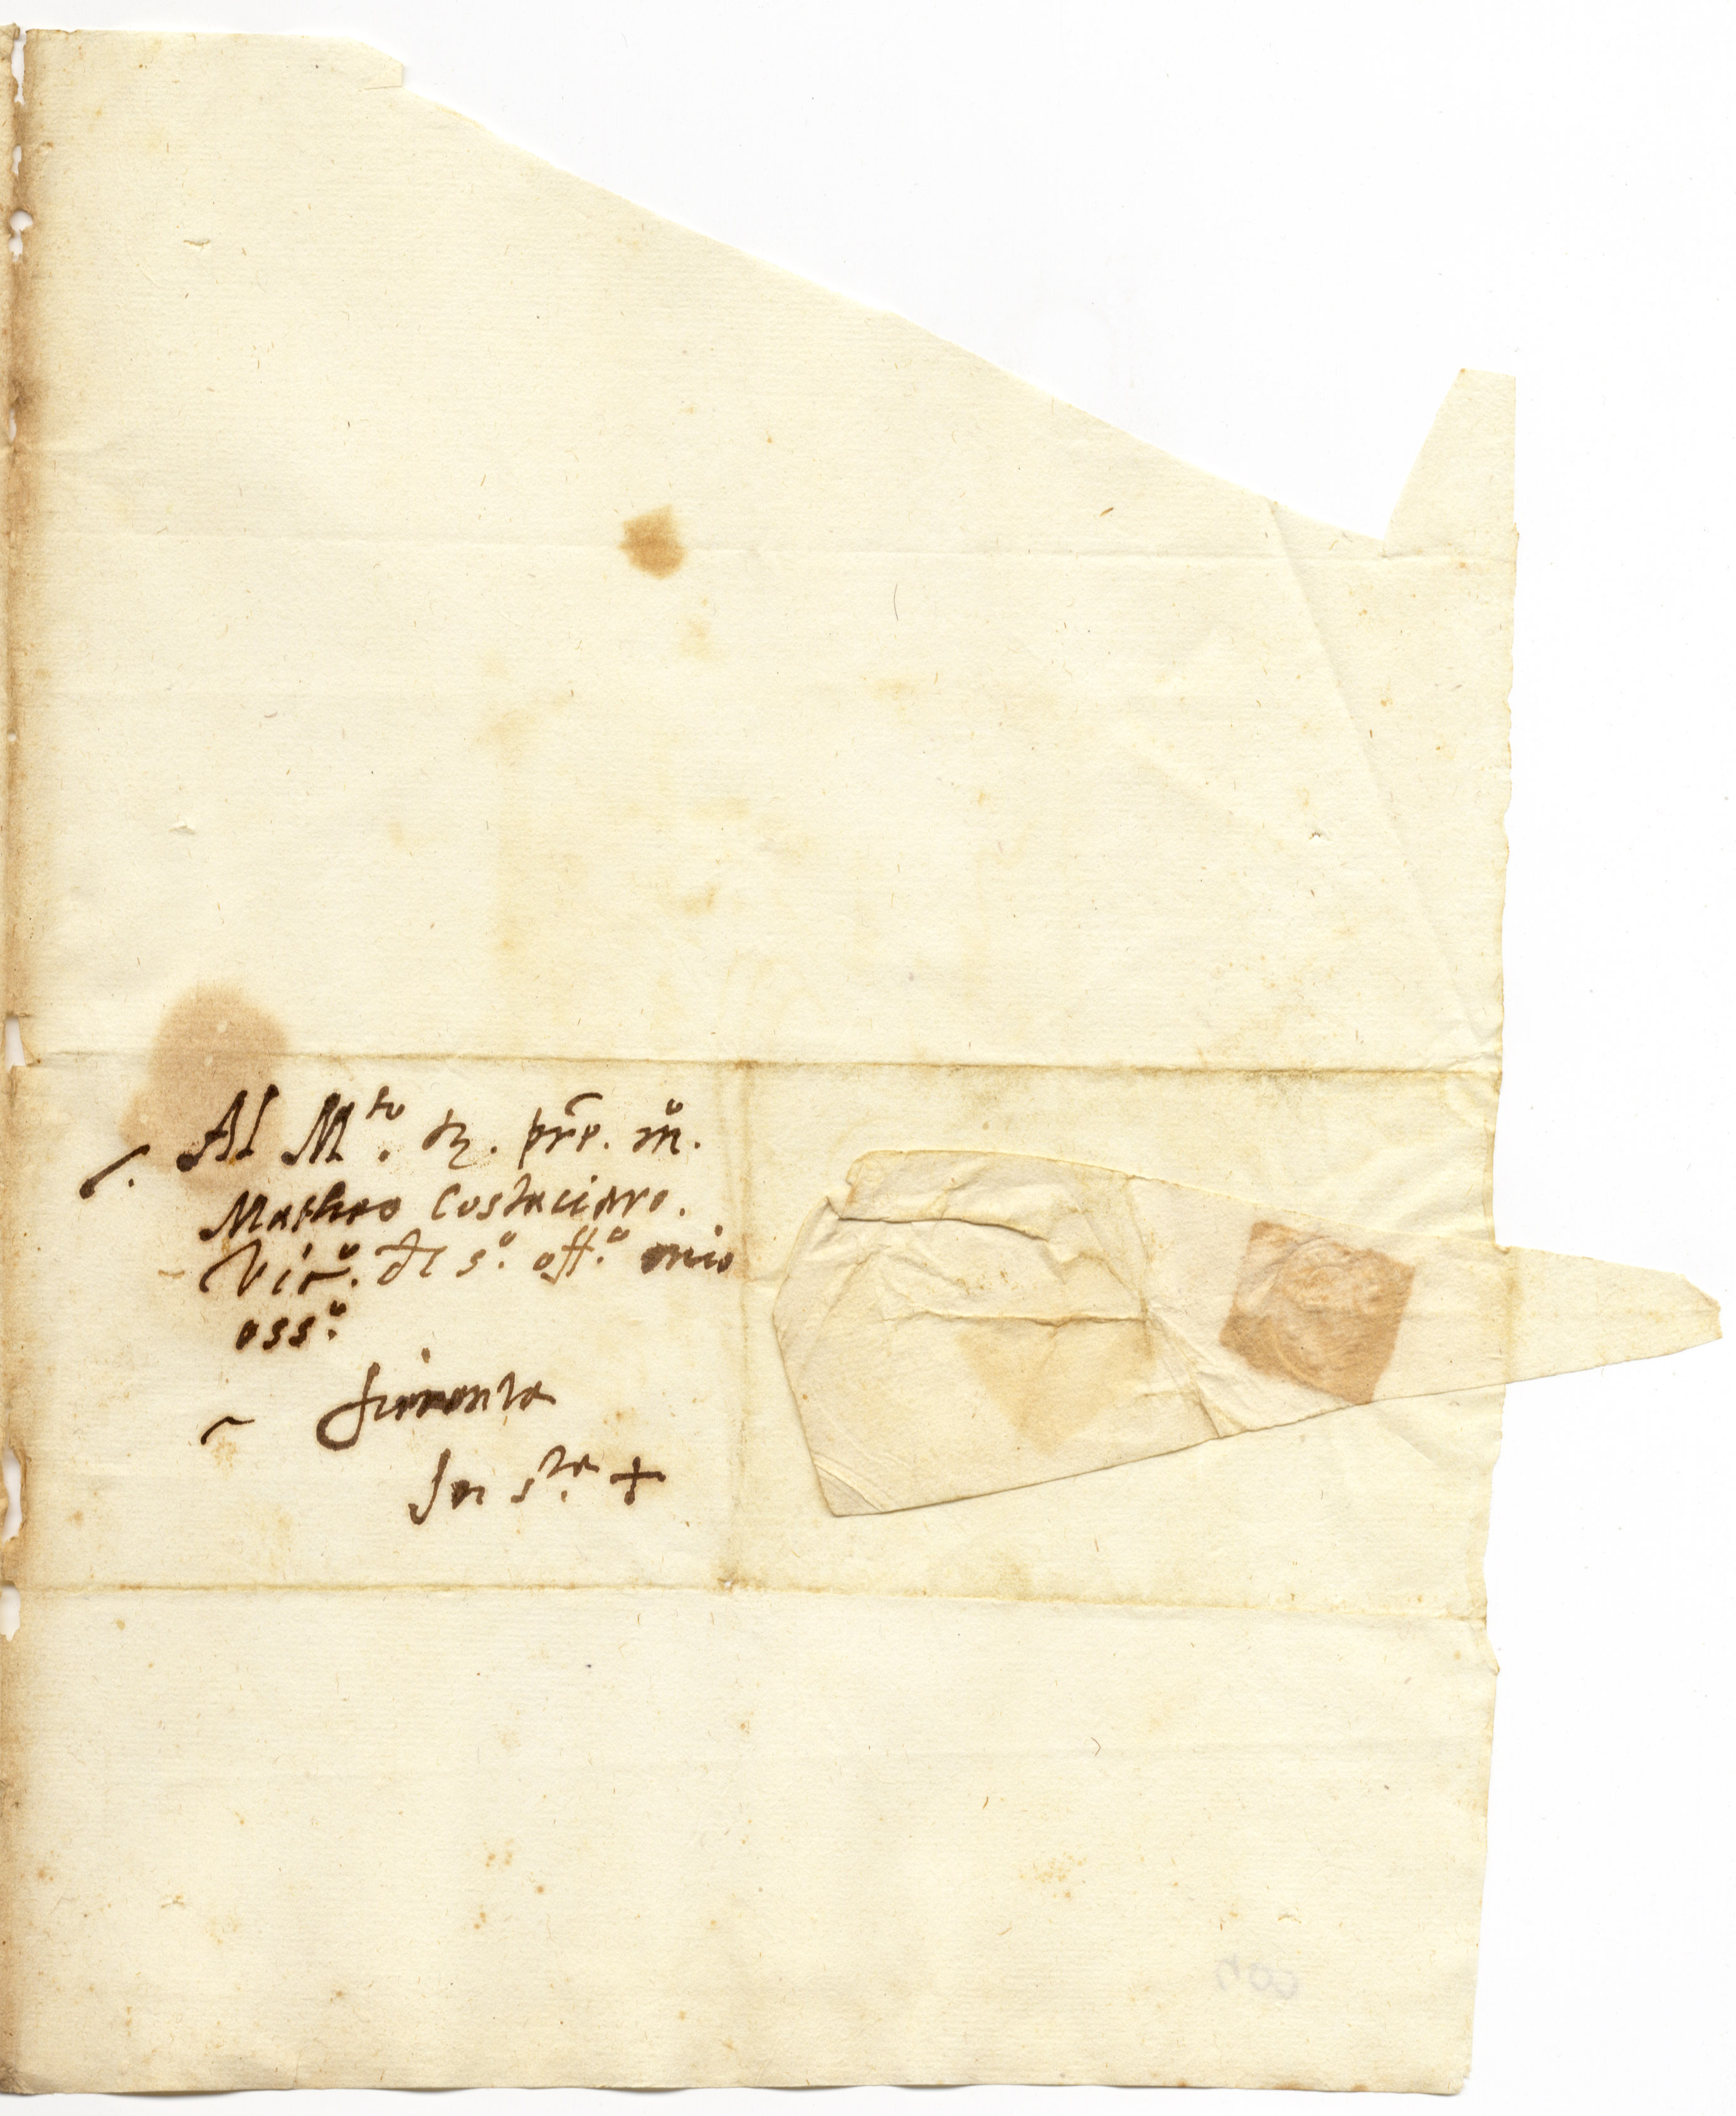 Al M.to R. pre. mo.
Matheo Costaciaro.
Vico. del so. offo. mio
osso.
fiorenza
In sta +